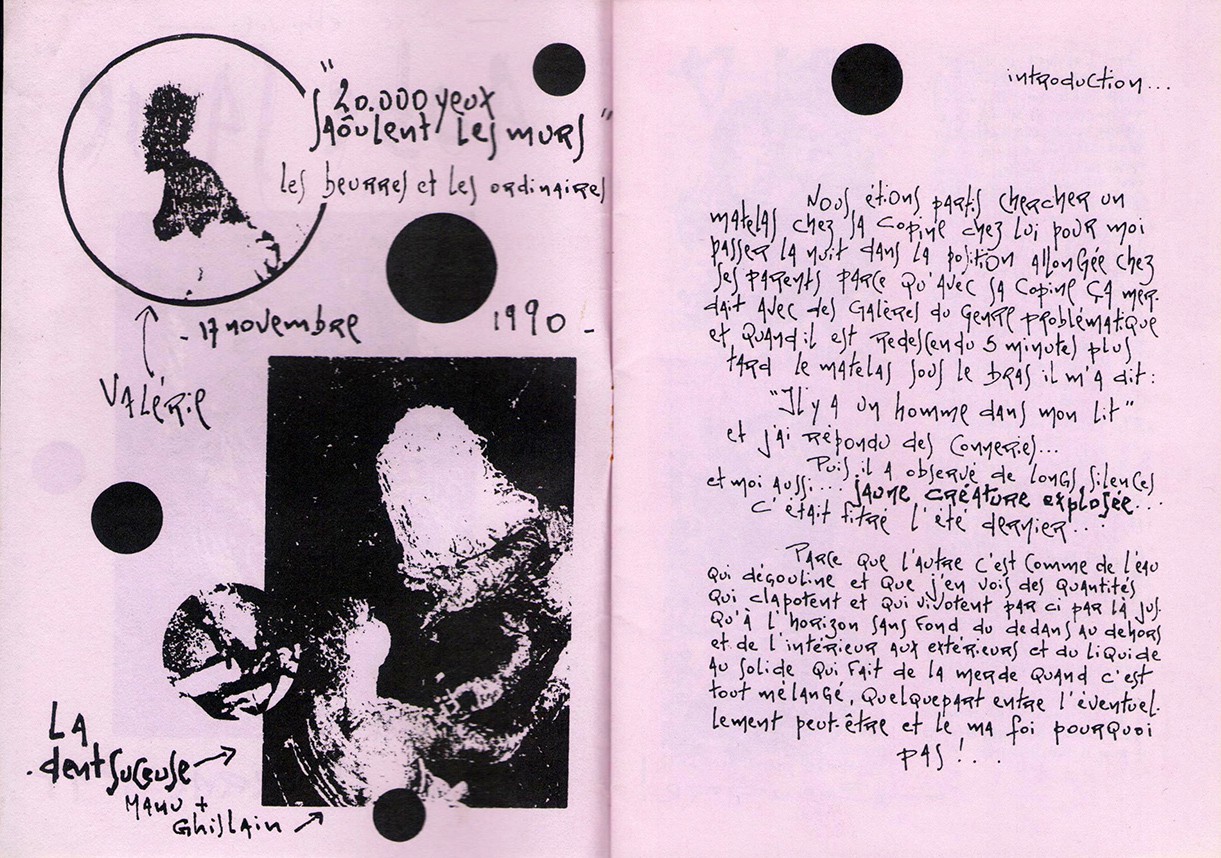 "20.000 yeux
saôulent les murs"
les beurres et les ordinaires
- 17 novembre 1990 -
VALÉRIE
LA
dent suceuse
MANU +
Ghislain
introduction...
Nous étions partis chercher un
matelas chez sa copine chez lui pour moi
passer la nuit dans la position allongée chez
ses parents parce qu'avec sa copine ça mer-
dait avec des galères du genre problématique
et quand il est redescendu 5 minutes plus
tard le matelas sous le bras il m'a dit :
"Il y a un homme dans mon lit"
et j'ai répondu des conneries...
Puis il a observé de longs silences
et moi aussi... jaune créature explosée...
c'était titré l'été dernier...
Parce que l'autre c'est comme de l'eau
qui dégouline et que j'en vois des quantités
qui clapotent et qui vivotent par ci par là jus-
qu'à l'horizon sans fond du dedans au dehors
et de l'intérieur aux extérieurs et du liquide
au solide qui fait de la merde quand c'est
tout mélangé, quelquepart entre l'éventuel-
lement peut-être et le ma foi pourquoi
pas !...